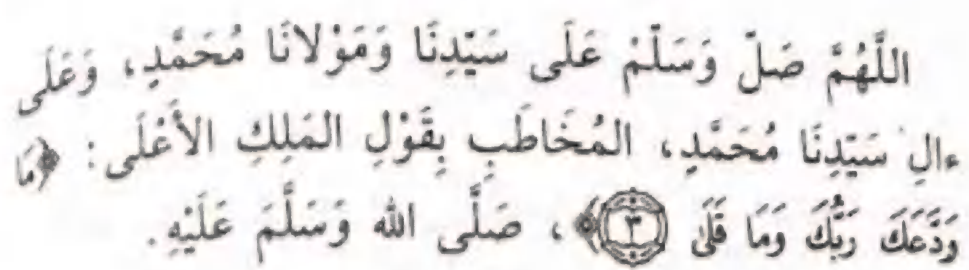 اللَّهُمَّ صَلِّ وَسَلِّمْ عَلَى سَيِّدِنَا وَمَوْلانَا مُحَمَّدٍ، وَعَلَى
ءالِ سَيِّدِنَا مُحَمَّدٍ، المُخَاطَبِ بِقَوْلِ المَلِكِ الأَعْلَى: ﴿مَا
وَدَّعَكَ رَبُّكَ وَمَا قَلَى ٣﴾، صَلَّى الله وَسَلَّمَ عَلَيْهِ.